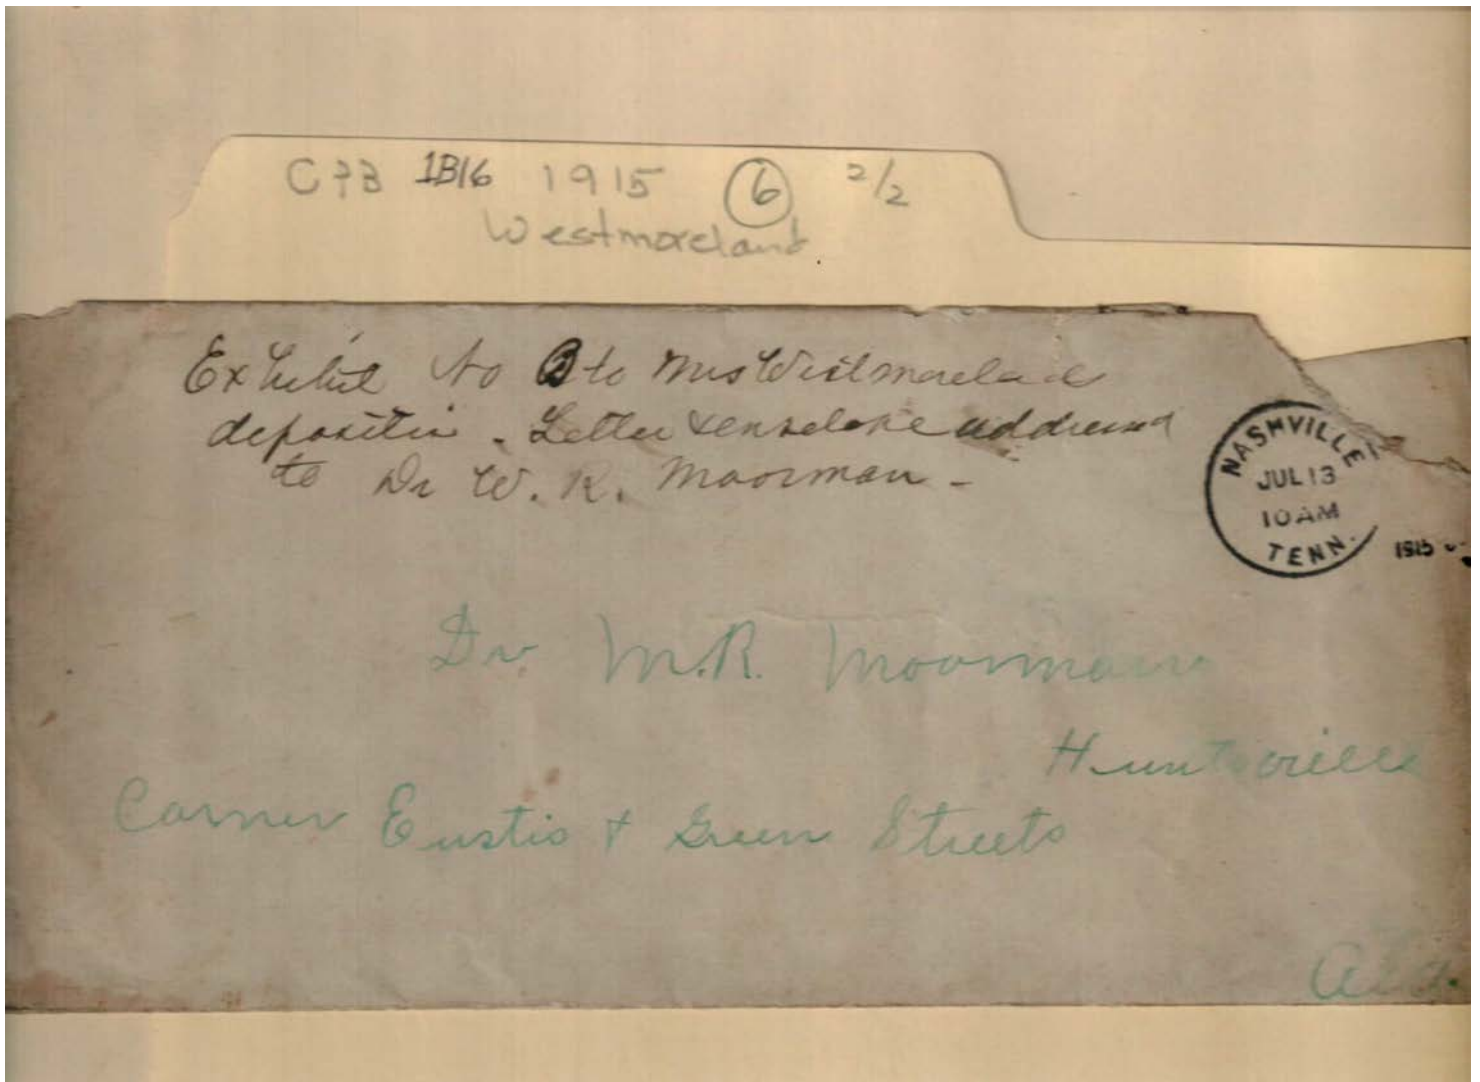 C93 1B16 1915 6 2/2
Westmoreland
Exhibit No to Mrs Westmoreland
deposition. Letter & envelope addressed
to Dr W. R. Moorman -
NASHVILLE
JUL 13
10 AM
TENN.
1915
Dr. M.R. Moorman
Huntsville
Corner Eustis & Green Streets
Ala.